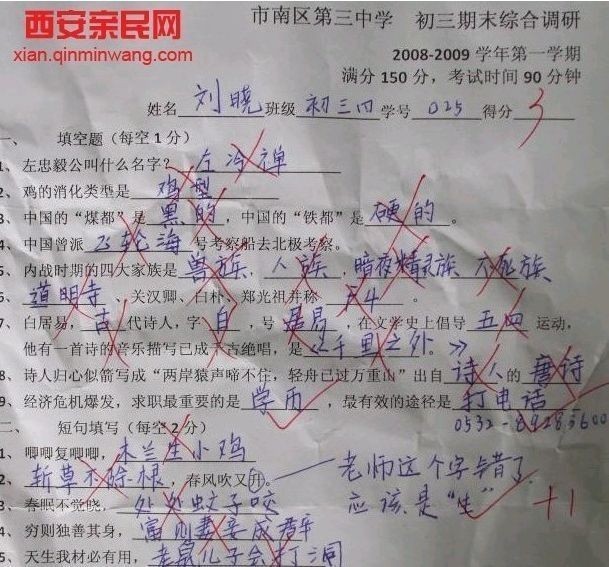 西安亲民网
xian.qinminwang.com
市南区第三中学 初三期末综合调研
2008-2009 学年第一学期
满分 150 分，考试时间 90 分钟
姓名 刘晓 班级 初三四 学号 025 得分 3
一、 填空题（每空 1 分）
1、左忠毅公叫什么名字？ 左冷禅
2、鸡的消化类型是 鸡型
3、中国的“煤都”是 黑的 ，中国的“铁都”是 硬的 。
4、中国曾派 飞轮海 号考察船去北极考察。
5、内战时期的四大家族是 兽族 、 人族 、 暗夜精灵族 、 不死族
6、 道明寺 、关汉卿、白朴、郑光祖并称 F4 。
7、白居易， 古 代诗人，字 白 ，号 居易 ，在文学史上倡导 五四 运动，
他有一首诗的音乐描写已成千古绝唱，是 《千里之外。》
8、诗人归心似箭写成“两岸猿声啼不住，轻舟已过万重山”出自 诗人 的 唐诗
9、经济危机爆发，求职最重要的是 学历 ，最有效的途径是 打电话
0532-
二、 短句填写（每空 2 分）
1、唧唧复唧唧， 木兰生小鸡
2、 斩草不除根 ，春风吹又开。 老师这个字错了
应该是“生” +1
3、春眠不觉晓， 处处蚊子咬
4、穷则独善其身， 富则妻妾成群
5、天生我材必有用， 老鼠儿子会打洞